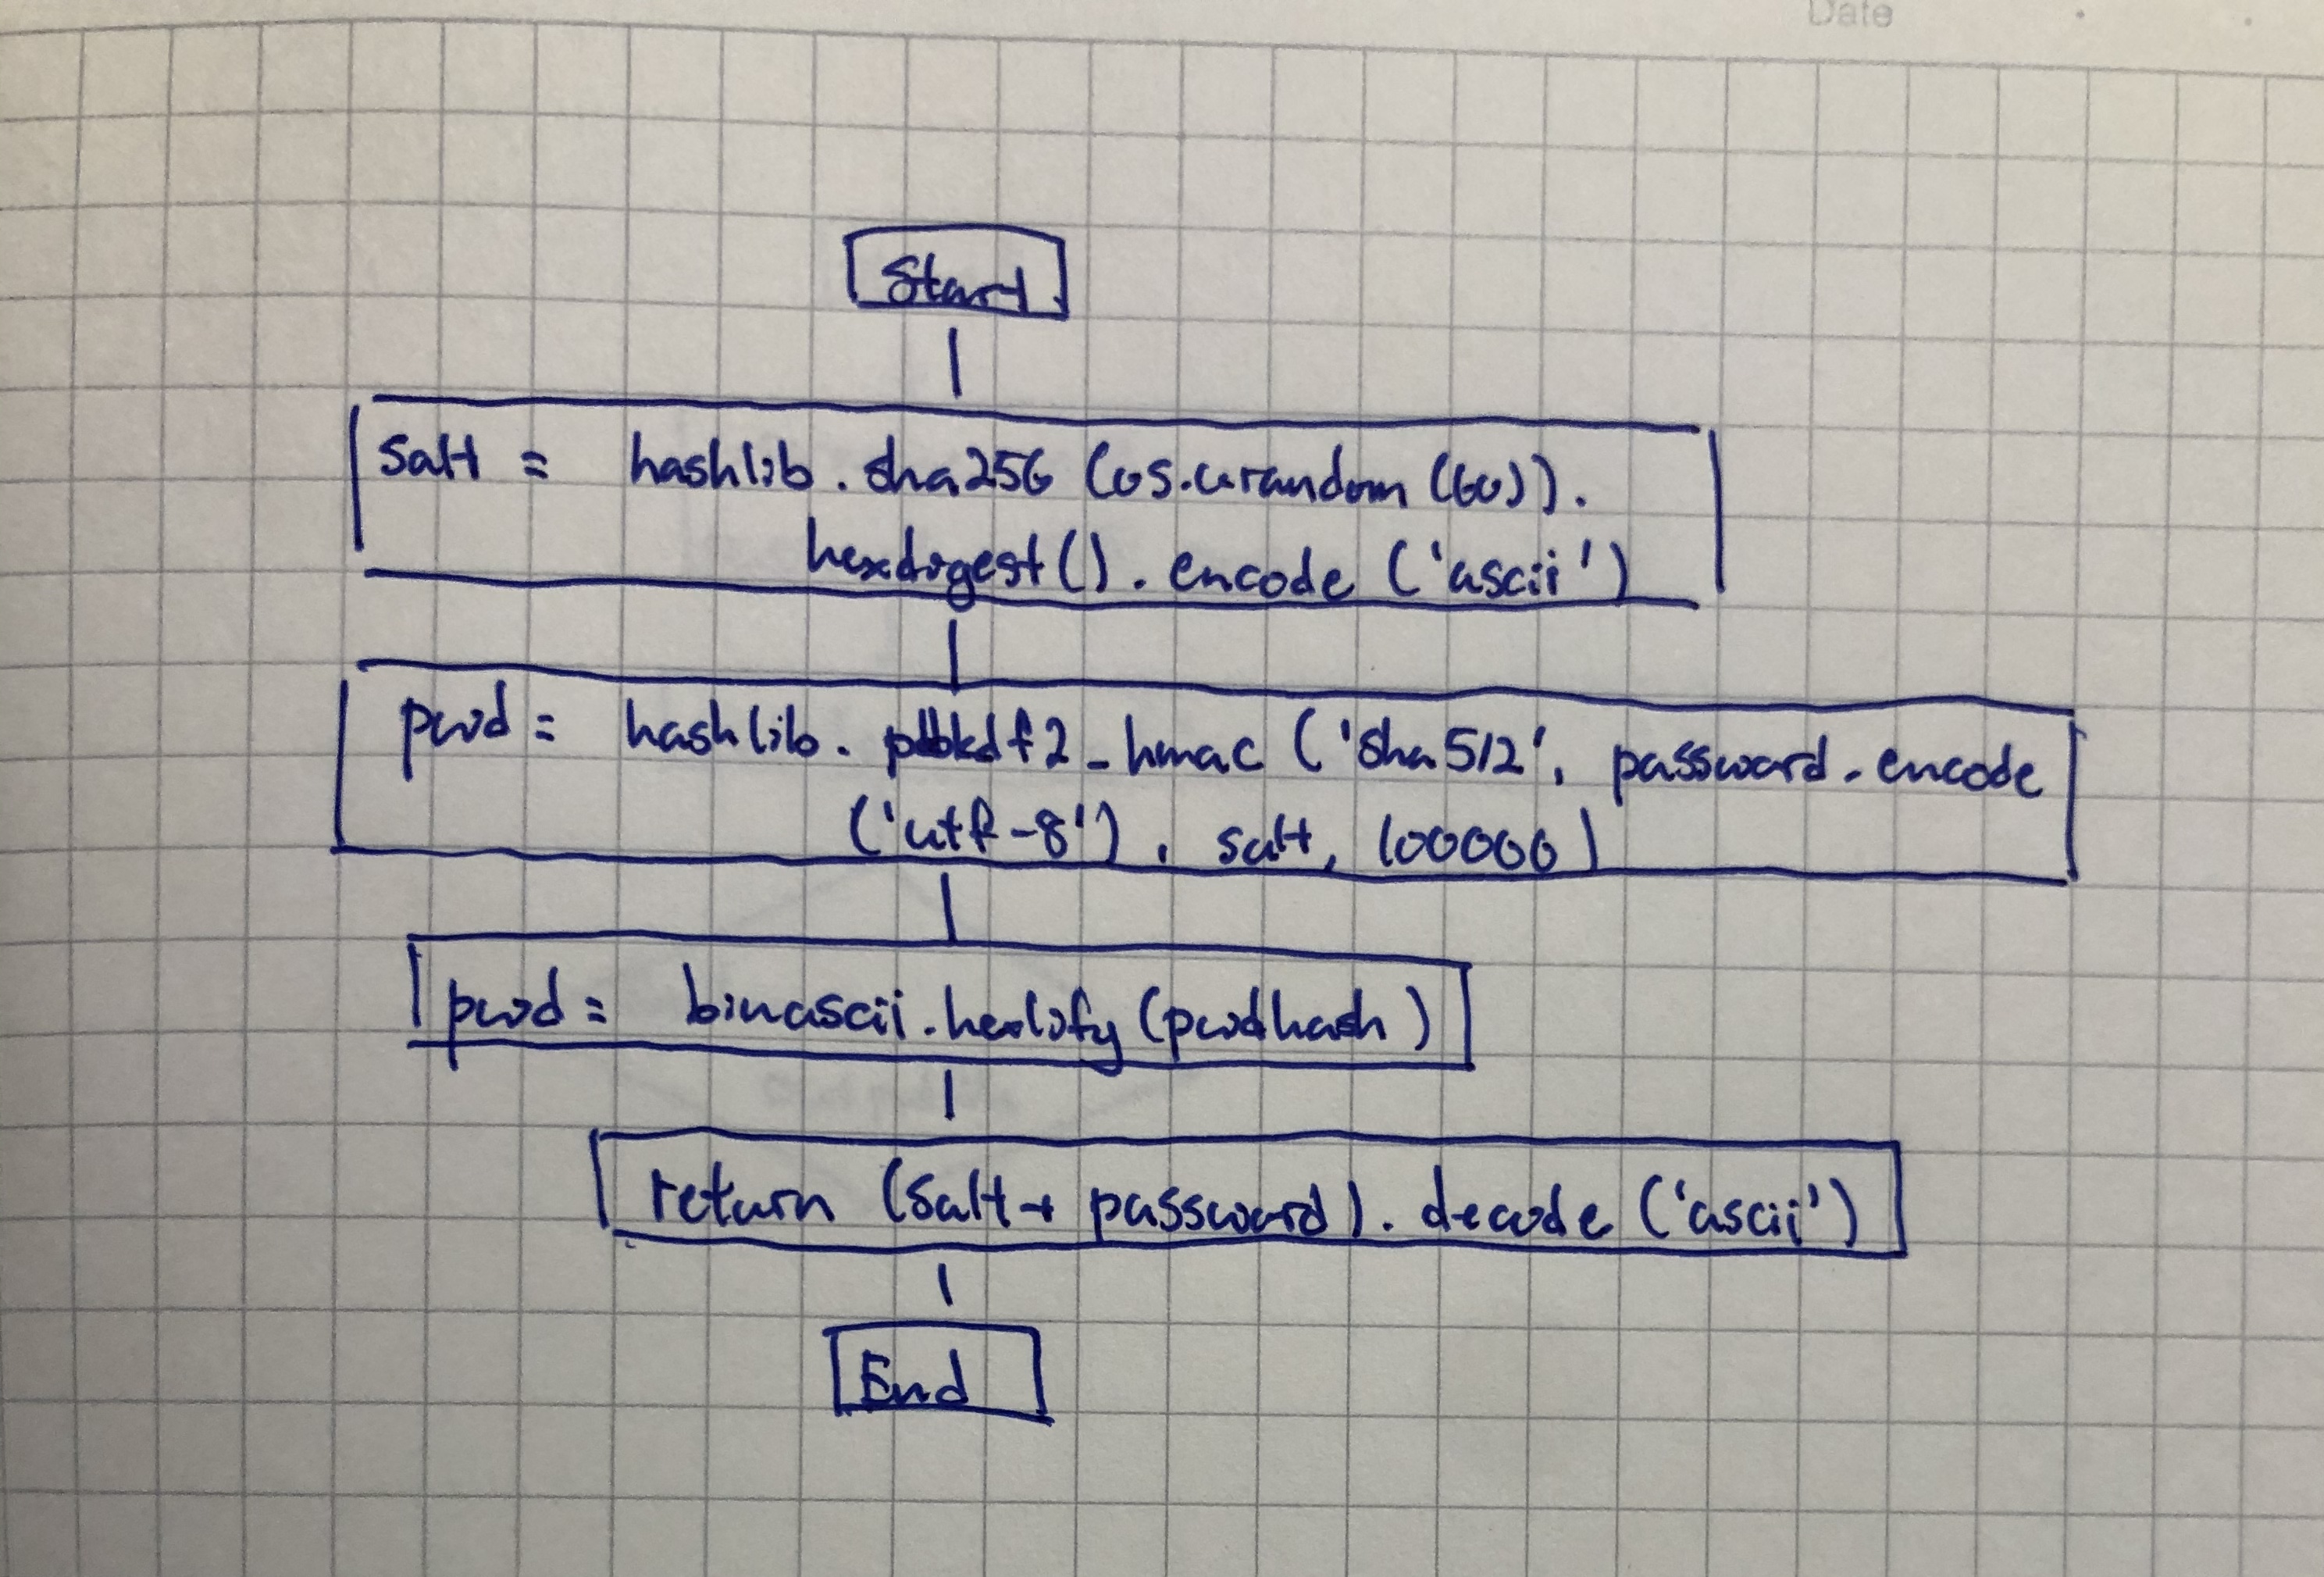 Date
Start
salt = hashlib.sha256 (os.urandom (60)).
hexdigest().encode ('ascii')
pwd = hashlib.pbkdf2_hmac ('sha512', password.encode
('utf-8'), salt, 100000)
pwd = binascii.hexlify (pwdhash)
return (salt + password).decode ('ascii')
End